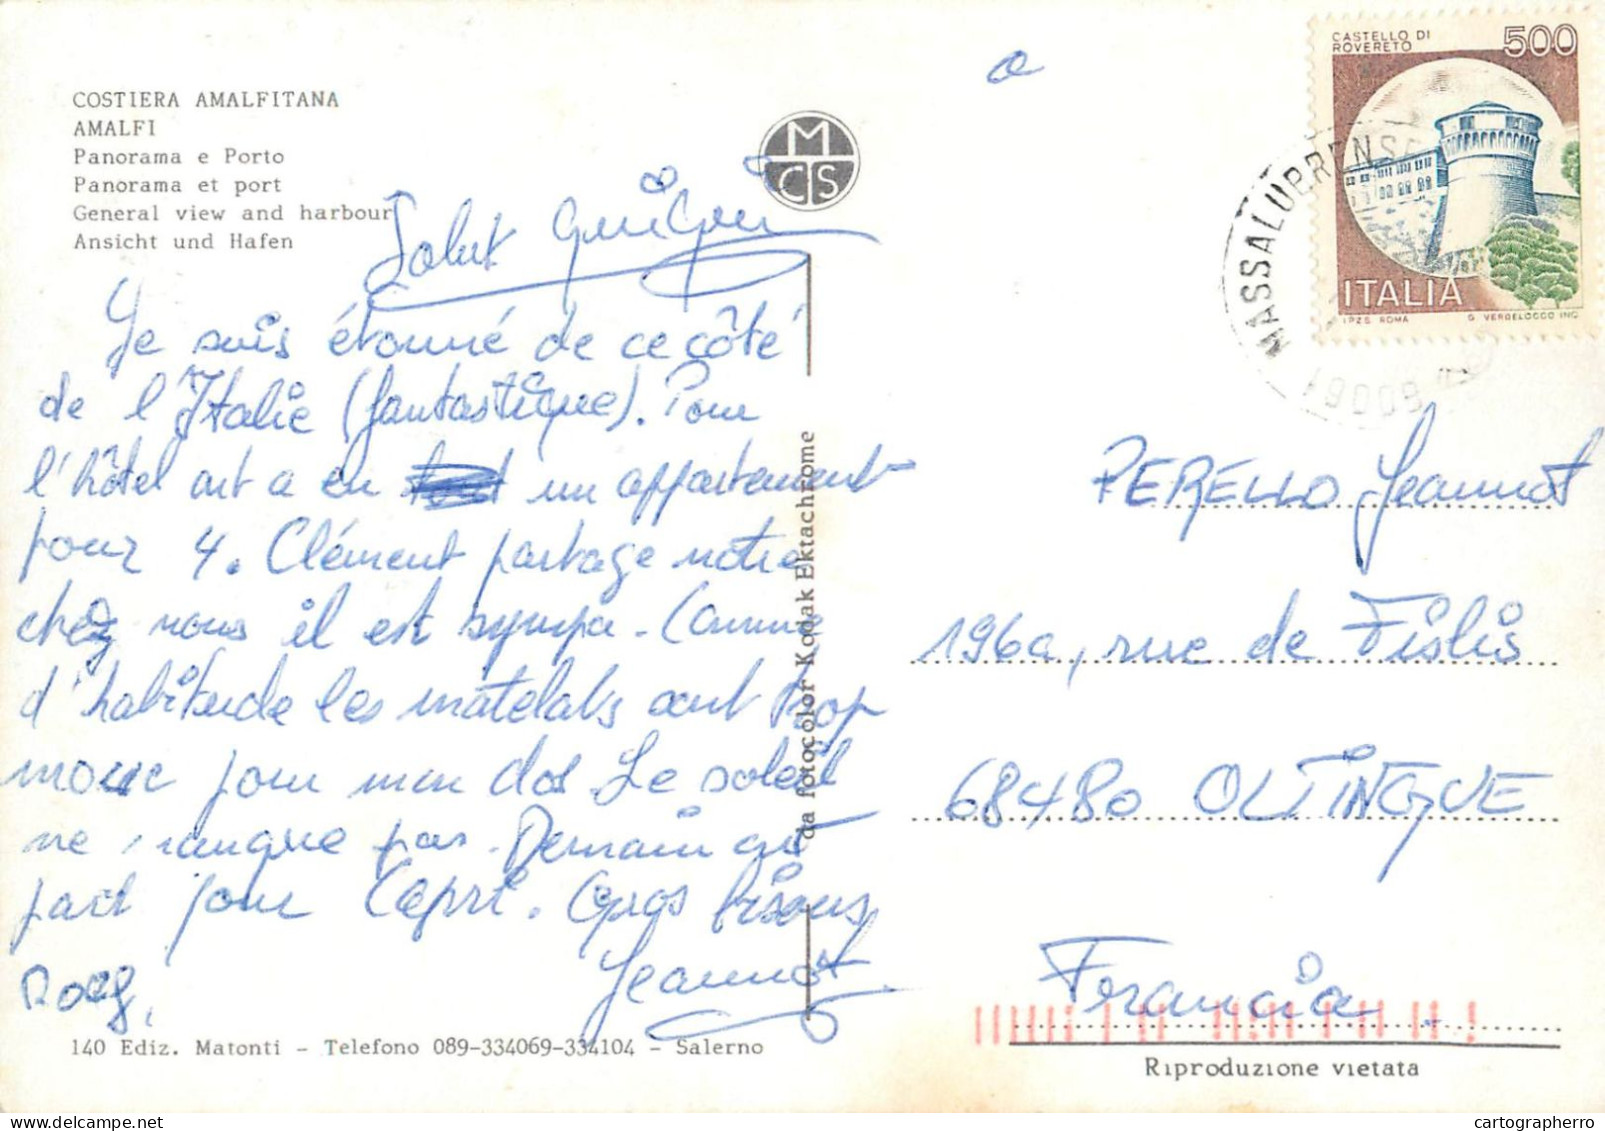 COSTIERA AMALFITANA
AMALFI
Panorama e Porto
Panorama et port
General view and harbour
Ansicht und Hafen
MCS
Salut Guigui
Je suis étonné de ce côté
de l'Italie (fantastique). Pour
l'hôtel ont a en un appartement
pour 4. Clément partage notre
chez nous il est sympa. Comme
d'habitude les matelats sont trop
mouc pour mon dos. Le soleil
ne manque pas. Demain ont
part pour Capri. Gros bisous
Jeannot
140 Ediz. Matonti - Telefono 089-334069-334104 - Salerno
da fotocolor Kodak Ektachrome
CASTELLO DI ROVERETO
500
ITALIA
I.P.Z.S. ROMA
G. VERDELOCCO INC.
MASSALUBRENSE
80061
PERELLO Jeannot
196a, rue de Fislis
68480 OLTINGUE
Francia
Riproduzione vietata
cartographerro